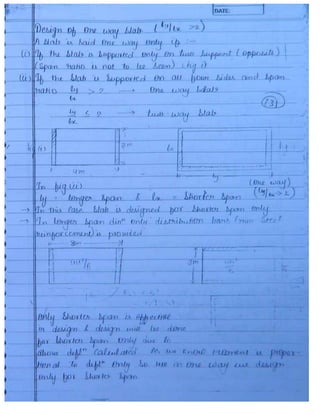 DATE:
Design of One way Slab (ly/lx >2)
A slab is said One way Only if -
(i) If the slab is supported only on two support (opposite)
(Span ratio is not to be seen) fig i)
(ii) If the slab is supported on all four sides and span
ratio ly/lx > 2 → One way slab
(3)
ly/lx ≤ 2 → two way slab
fig (i)
2m
lx
4m
ly
In fig (ii)
(One way)
ly = longer span & lx = Shorter Span
(ly/lx > 2)
→ In this case slab is designed for shorter span only
→ In longer span dirn only distribution bars (min steel
reinforcement) is provided
8m
3m
Only Shorter Span is effective
in design & design will be done
for shorter span only due to
above defln calculated As we know moment is propor-
tional to defln only so here in one way we design
only for shorter span